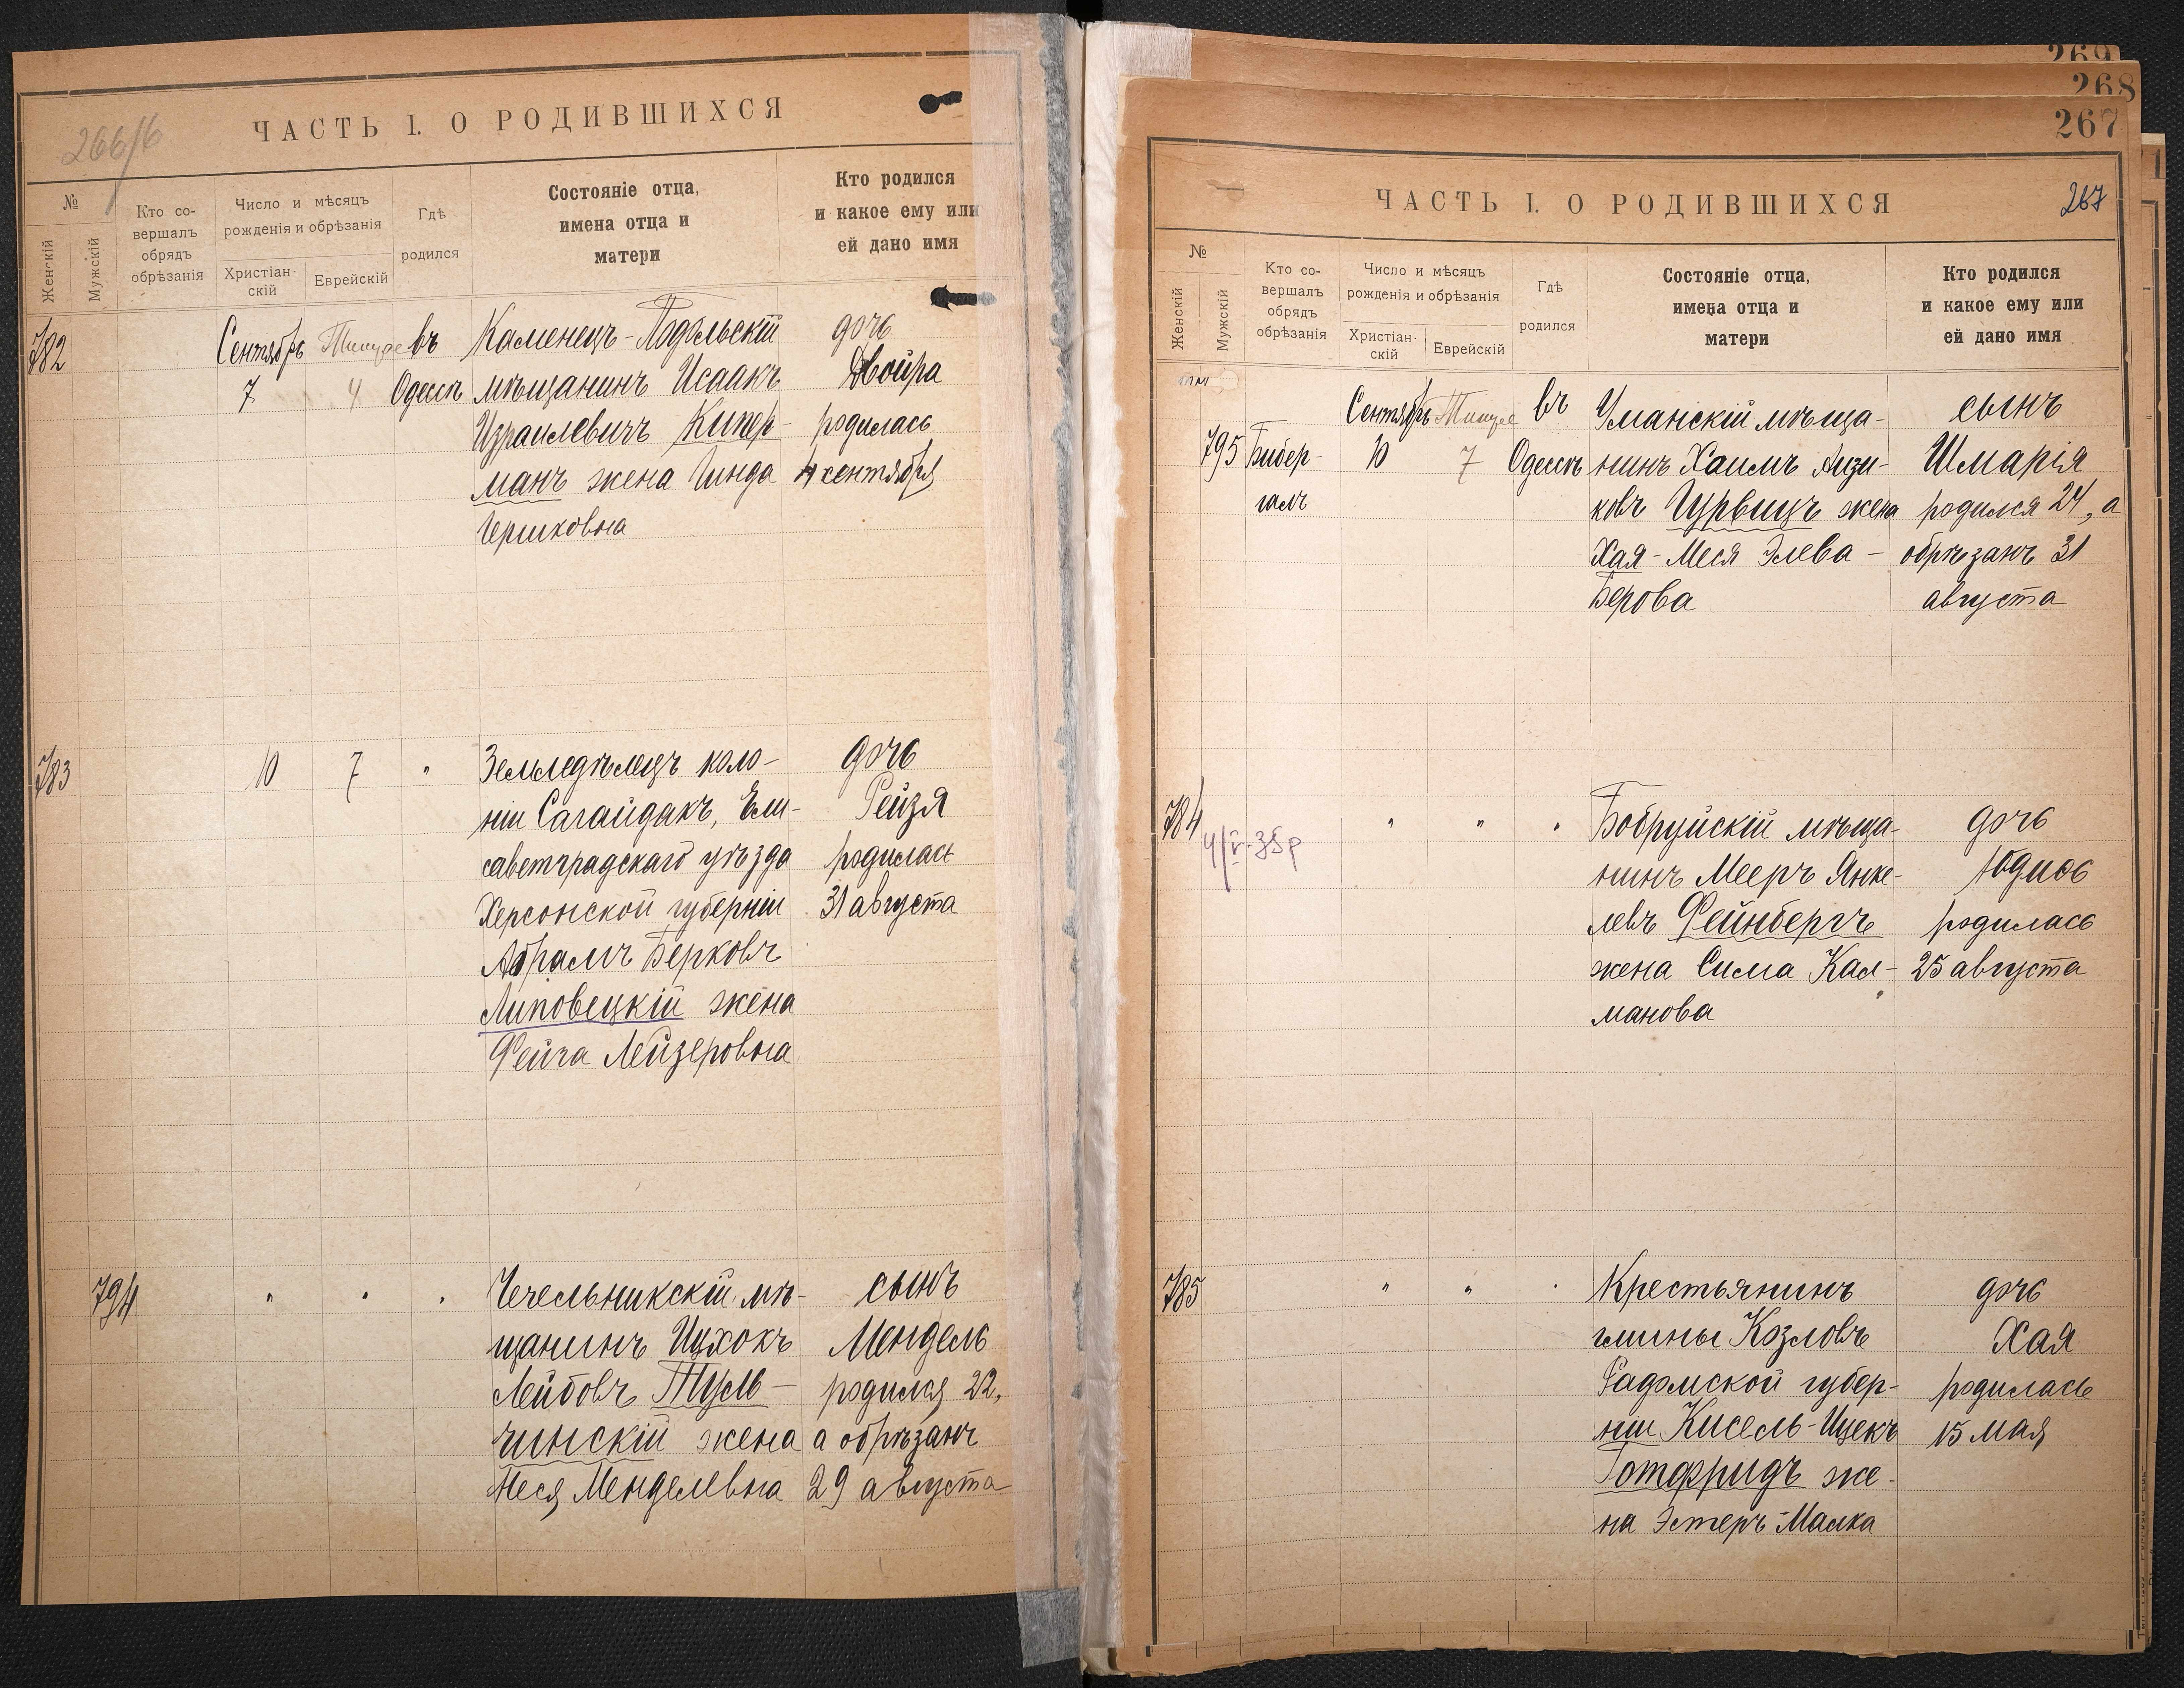 266/б
ЧАСТЬ I. О РОДИВШИХСЯ
№
Женскій
Мужскій
Кто со-
вершалъ
обрядъ
обрѣзанія
Число и мѣсяцъ
рожденія и обрѣзанія
Христіан-
скій
Еврейскій
Гдѣ
родился
Состояніе отца,
имена отца и
матери
Кто родился
и какое ему или
ей дано имя
782
Сентябрь
7
Тишре
4
въ
Одессѣ
Каменецъ-Подольскій
мѣщанинъ Исаакъ
Израилевичъ Кипер-
манъ жена Гинда
Гершковна
дочь
Двойра
родилась
4 сентября
783
10
7
"
Земледѣлецъ коло-
ніи Сагайдакъ, Ели-
саветградскаго уѣзда
Херсонской губерніи
Абрамъ Берковъ
Липовецкій жена
Фейга Лейзеровна
дочь
Рейзя
родилась
31 августа
794
"
"
"
Чечельникскій мѣ-
щанинъ Ицхокъ
Лейбовъ Туль-
чинскій жена
Неся Менделевна
сынъ
Мендель
родился 22,
а обрѣзанъ
29 августа
269
268
267
ЧАСТЬ I. О РОДИВШИХСЯ
267
№
Женскій
Мужскій
Кто со-
вершалъ
обрядъ
обрѣзанія
Число и мѣсяцъ
рожденія и обрѣзанія
Христіан-
скій
Еврейскій
Гдѣ
родился
Состояніе отца,
имена отца и
матери
Кто родился
и какое ему или
ей дано имя
795
Бибер-
галъ
Сентябрь
10
Тишре
7
въ
Одессѣ
Уманскій мѣща-
нинъ Хаимъ Аизи-
ковъ Гурвицъ жена
Хая-Меся Элева-
Берова
сынъ
Шмарія
родился 24, а
обрѣзанъ 31
августа
784
"
"
"
Бобруйскій мѣща-
нинъ Мееръ Янке-
левъ Фейнбергъ
жена Сима Кал-
манова
дочь
Юдись
родилась
25 августа
785
"
"
"
Крестьянинъ
гмины Козловъ
Радомской губер-
ніи Кисель-Ицекъ
Готфридъ же-
на Эстеръ-Малка
дочь
Хая
родилась
15 мая